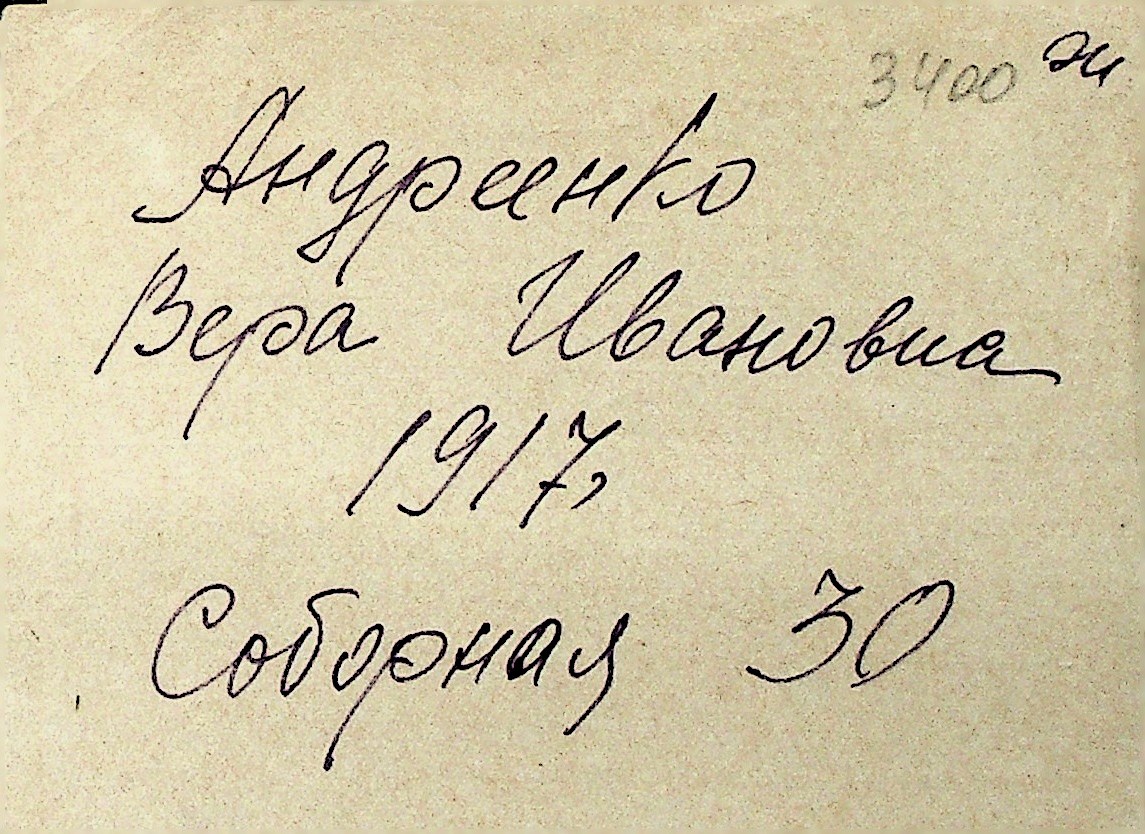 3400
Андреенко
Вера Ивановна
1917,
Соборная 30